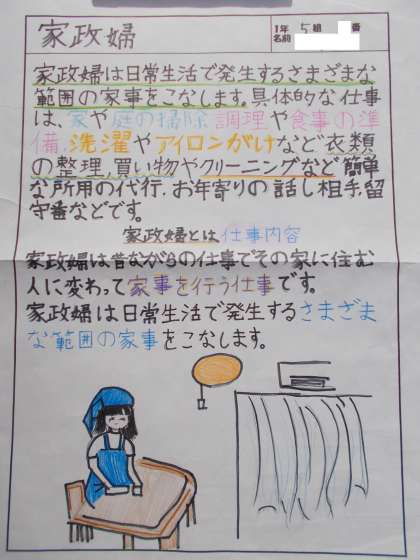 家政婦
1年 5組 番
名前
家政婦は日常生活で発生するさまざまな
範囲の家事をこなします。具体的な仕事
は、家や庭の掃除、調理や食事の準
備、洗濯やアイロンがけなど衣類
の整理、買い物やクリーニングなど簡単
な所用の代行、お年寄りの話し相手、留
守番などです。
家政婦とは仕事内容
家政婦は昔ながらの仕事でその家に住む
人に変わって家事を行う仕事です。
家政婦は日常生活で発生するさまざま
な範囲の家事をこなします。